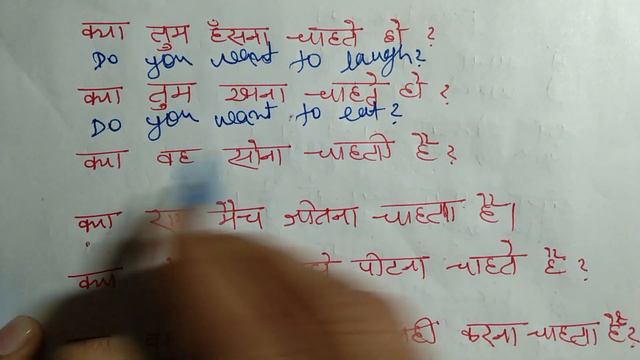 क्या तुम हँसना चाहते हो ?
Do you want to laugh?
क्या तुम खाना चाहते हो ?
Do you want to eat?
क्या वह सोना चाहती है ?
क्या मैच जीतना चाहता है।
क्या पीटना चाहते है ?
करना चाहता है?